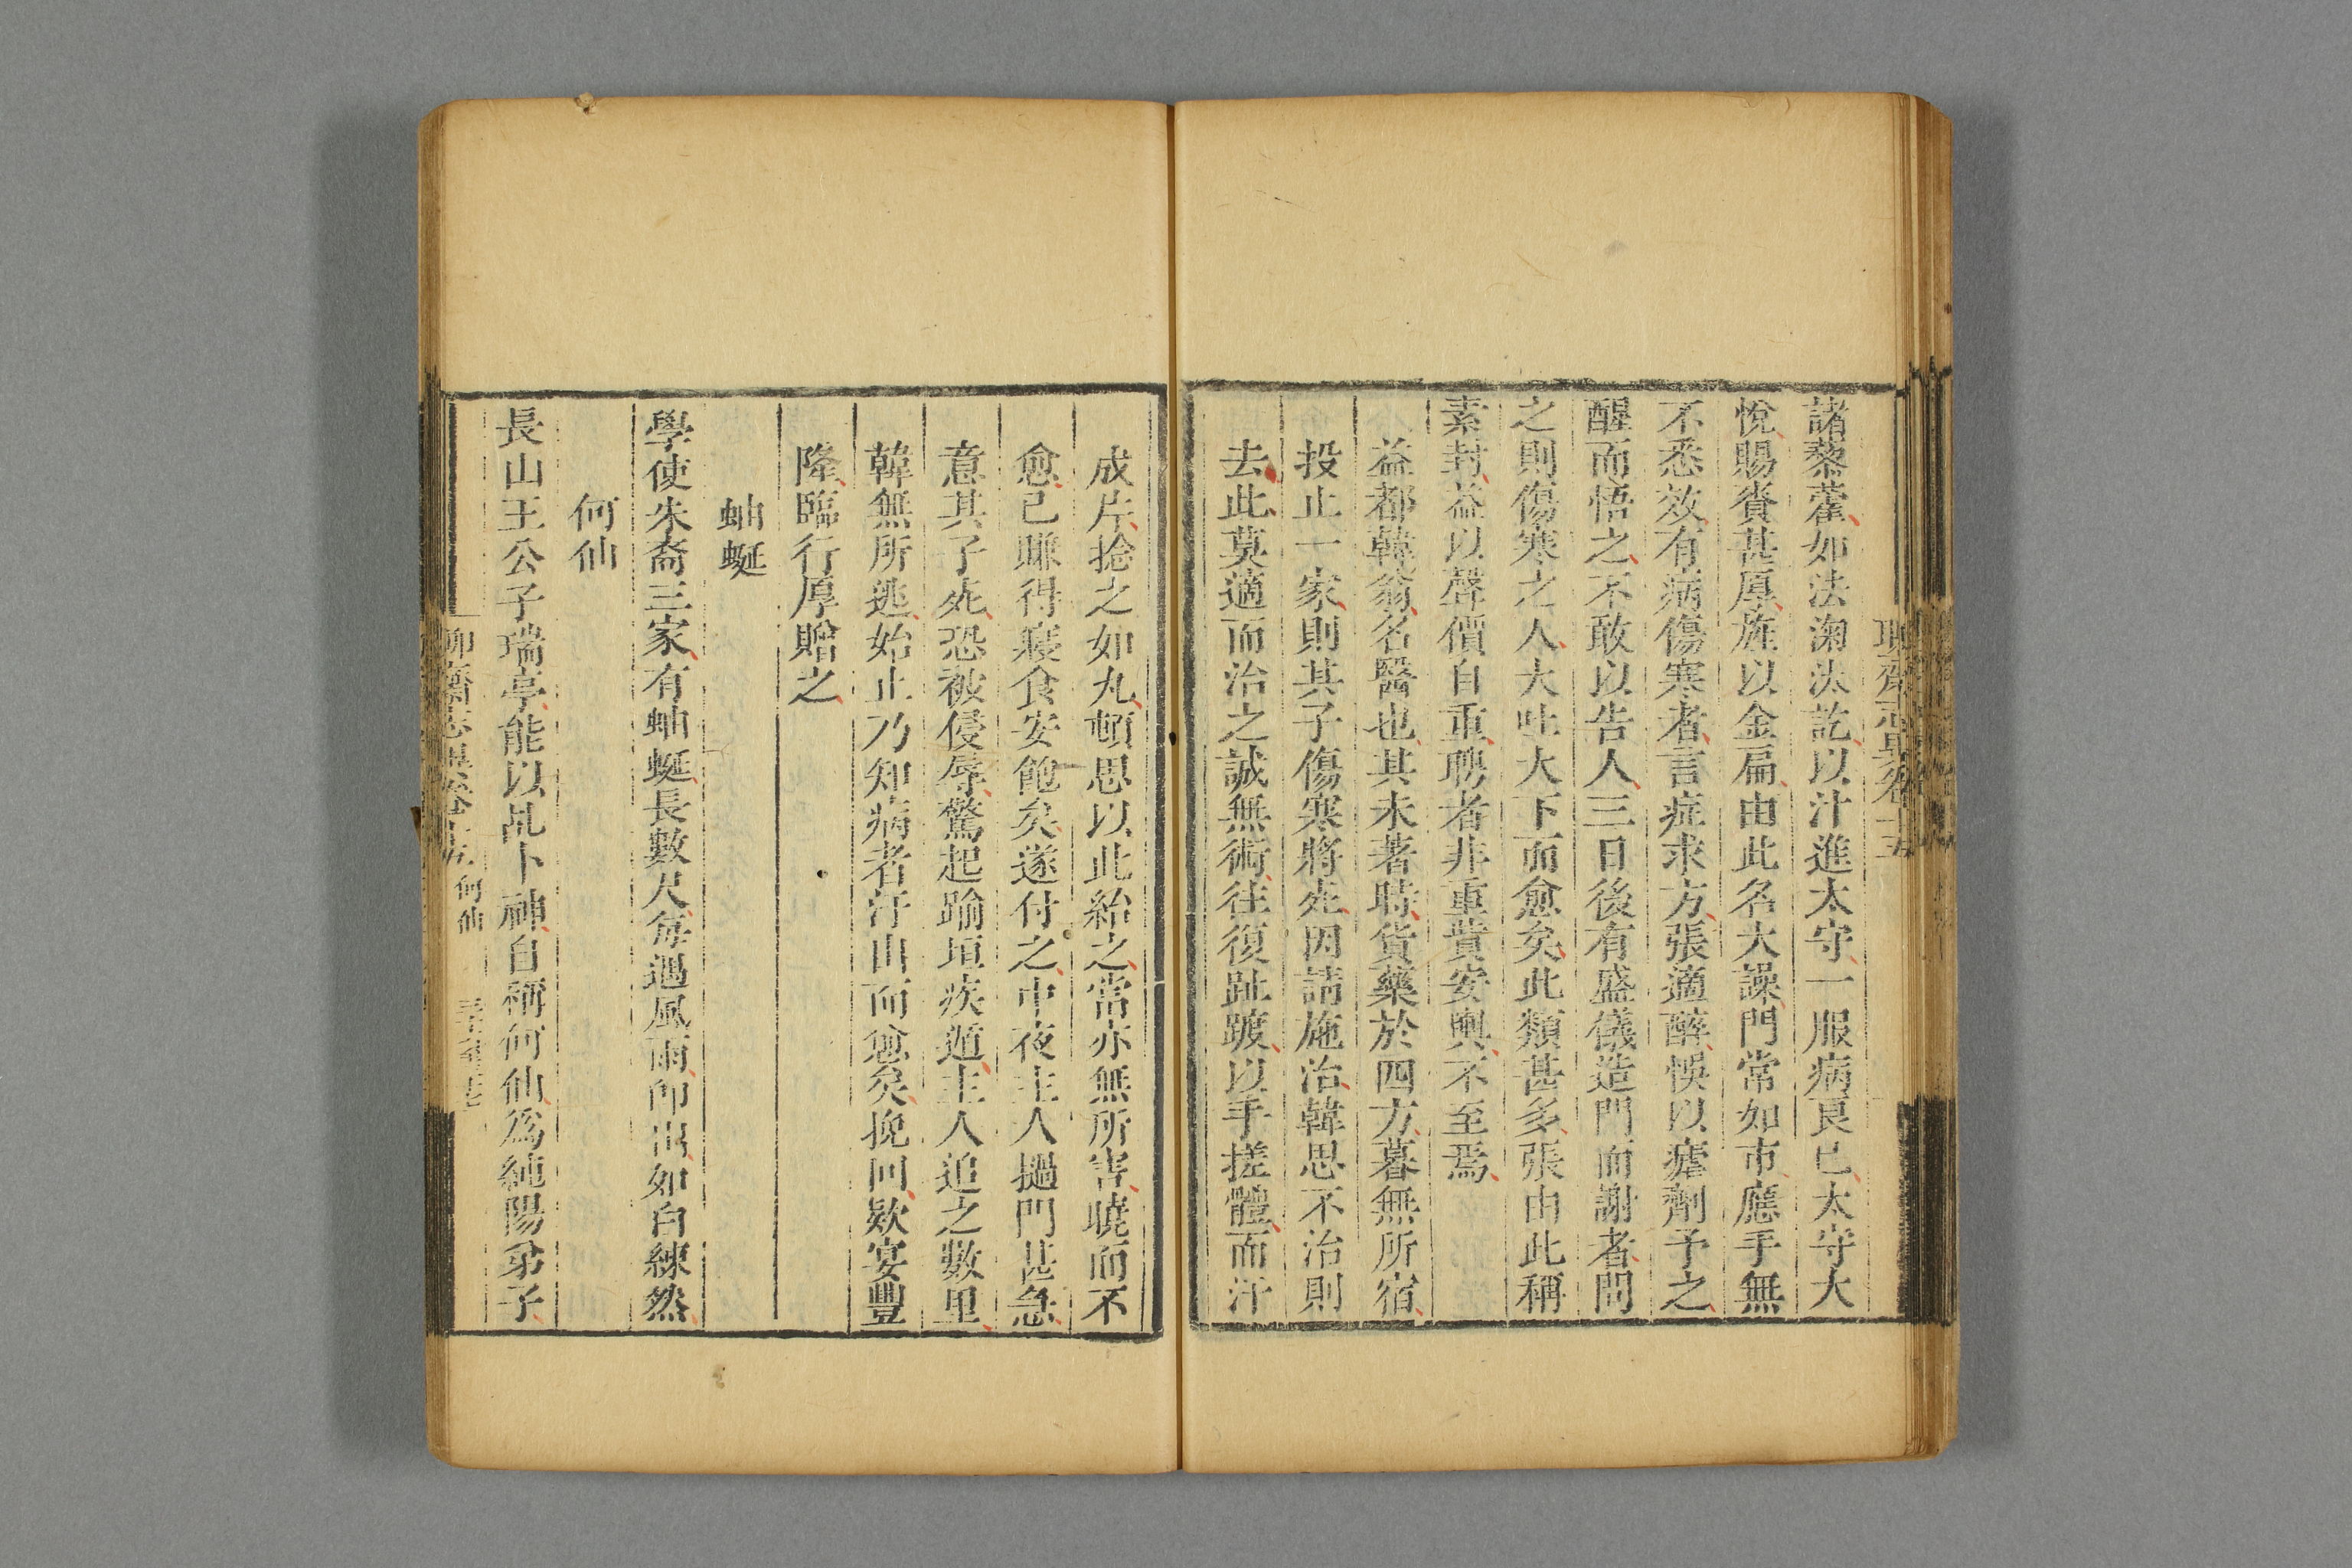 聊齋志異卷十五
諸藜藿、如法淘汰訖、以汁進太守、一服病良已、太守大
悅、賜賚甚厚、旌以金扁、由此名大譟、門常如市、應手無
不悉效、有病傷寒者、言症求方、張適醉、悞以瘧劑予之、
醒而悟之、不敢以告人、三日後有盛儀造門而謝者、問
之則傷寒之人、大吐大下而愈矣、此類甚多、張由此稱
素封、益以聲價自重、聘者非重貲安輿、不至焉、
益都韓翁、名醫也、其未著時、貨藥於四方、暮無所宿、
投止一家、則其子傷寒將死、因請施治、韓思不治則
去此莫適而治之誠無術、往復跐踱、以手搓體、而汗
成片、捻之如丸、頓思以此紿之、當亦無所害、曉而不
愈、已賺得寢食安飽矣、遂付之、中夜主人撾門甚急、
意其子死、恐被侵辱、驚起踰垣疾遁、主人追之數里、
韓無所逃、始止、乃知病者汗出而愈矣、挽回、欵宴豐
隆、臨行厚贈之、
蚰蜒
學使朱裔三家、有蚰蜒、長數尺、每遇風雨、卽出、如白練然、
何仙
長山王公子瑞亭、能以乩卜、神自稱何仙、爲純陽弟子、
聊齋志異卷十五 何仙